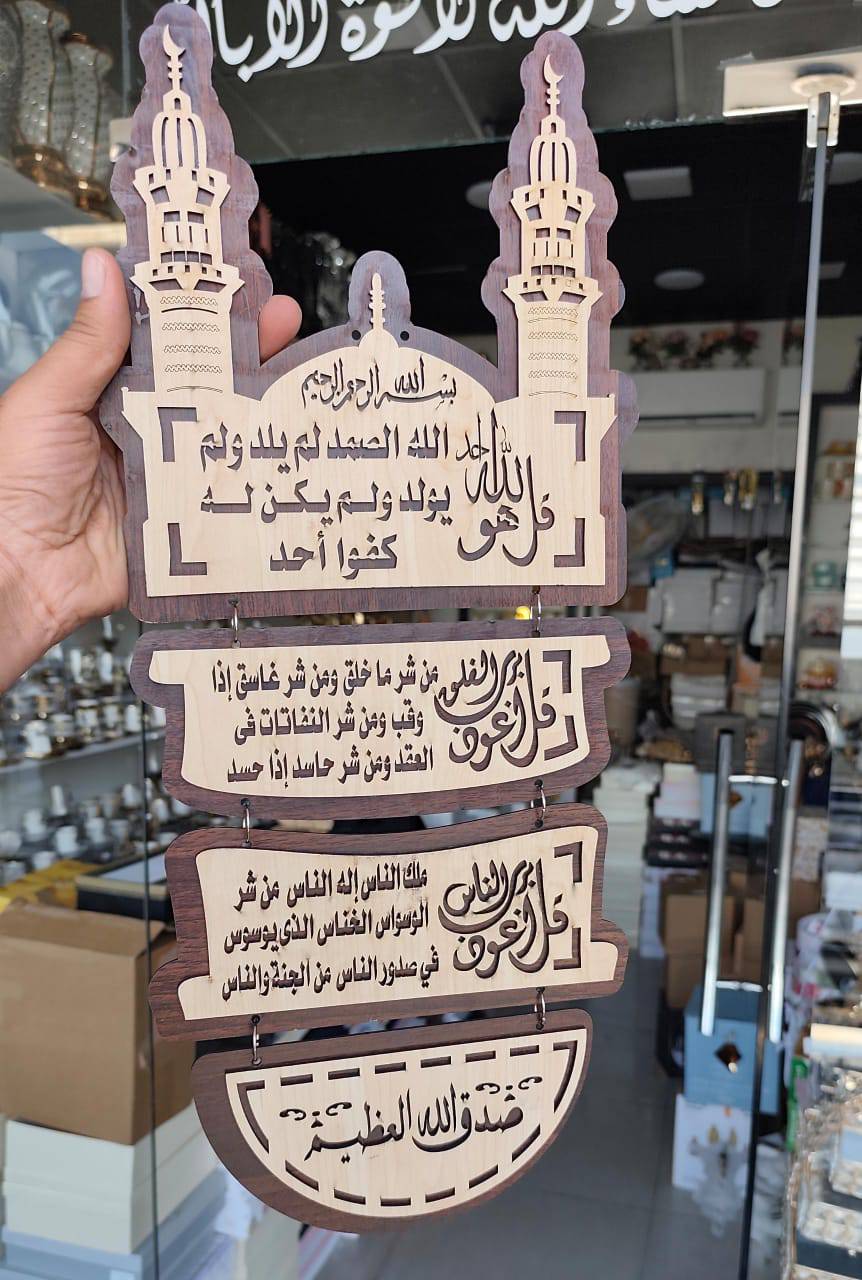 شاء الله لا قوة إلا بالله
بسم الله الرحمن الرحيم
قل هو الله أحد
الله الصمد لم يلد ولم
يولد ولم يكن له
كفوا أحد
قل أعوذ برب الفلق
من شر ما خلق ومن شر غاسق إذا
وقب ومن شر النفاثات فى
العقد ومن شر حاسد إذا حسد
قل أعوذ برب الناس
ملك الناس إله الناس من شر
الوسواس الخناس الذى يوسوس
في صدور الناس من الجنة والناس
صدق الله العظيم